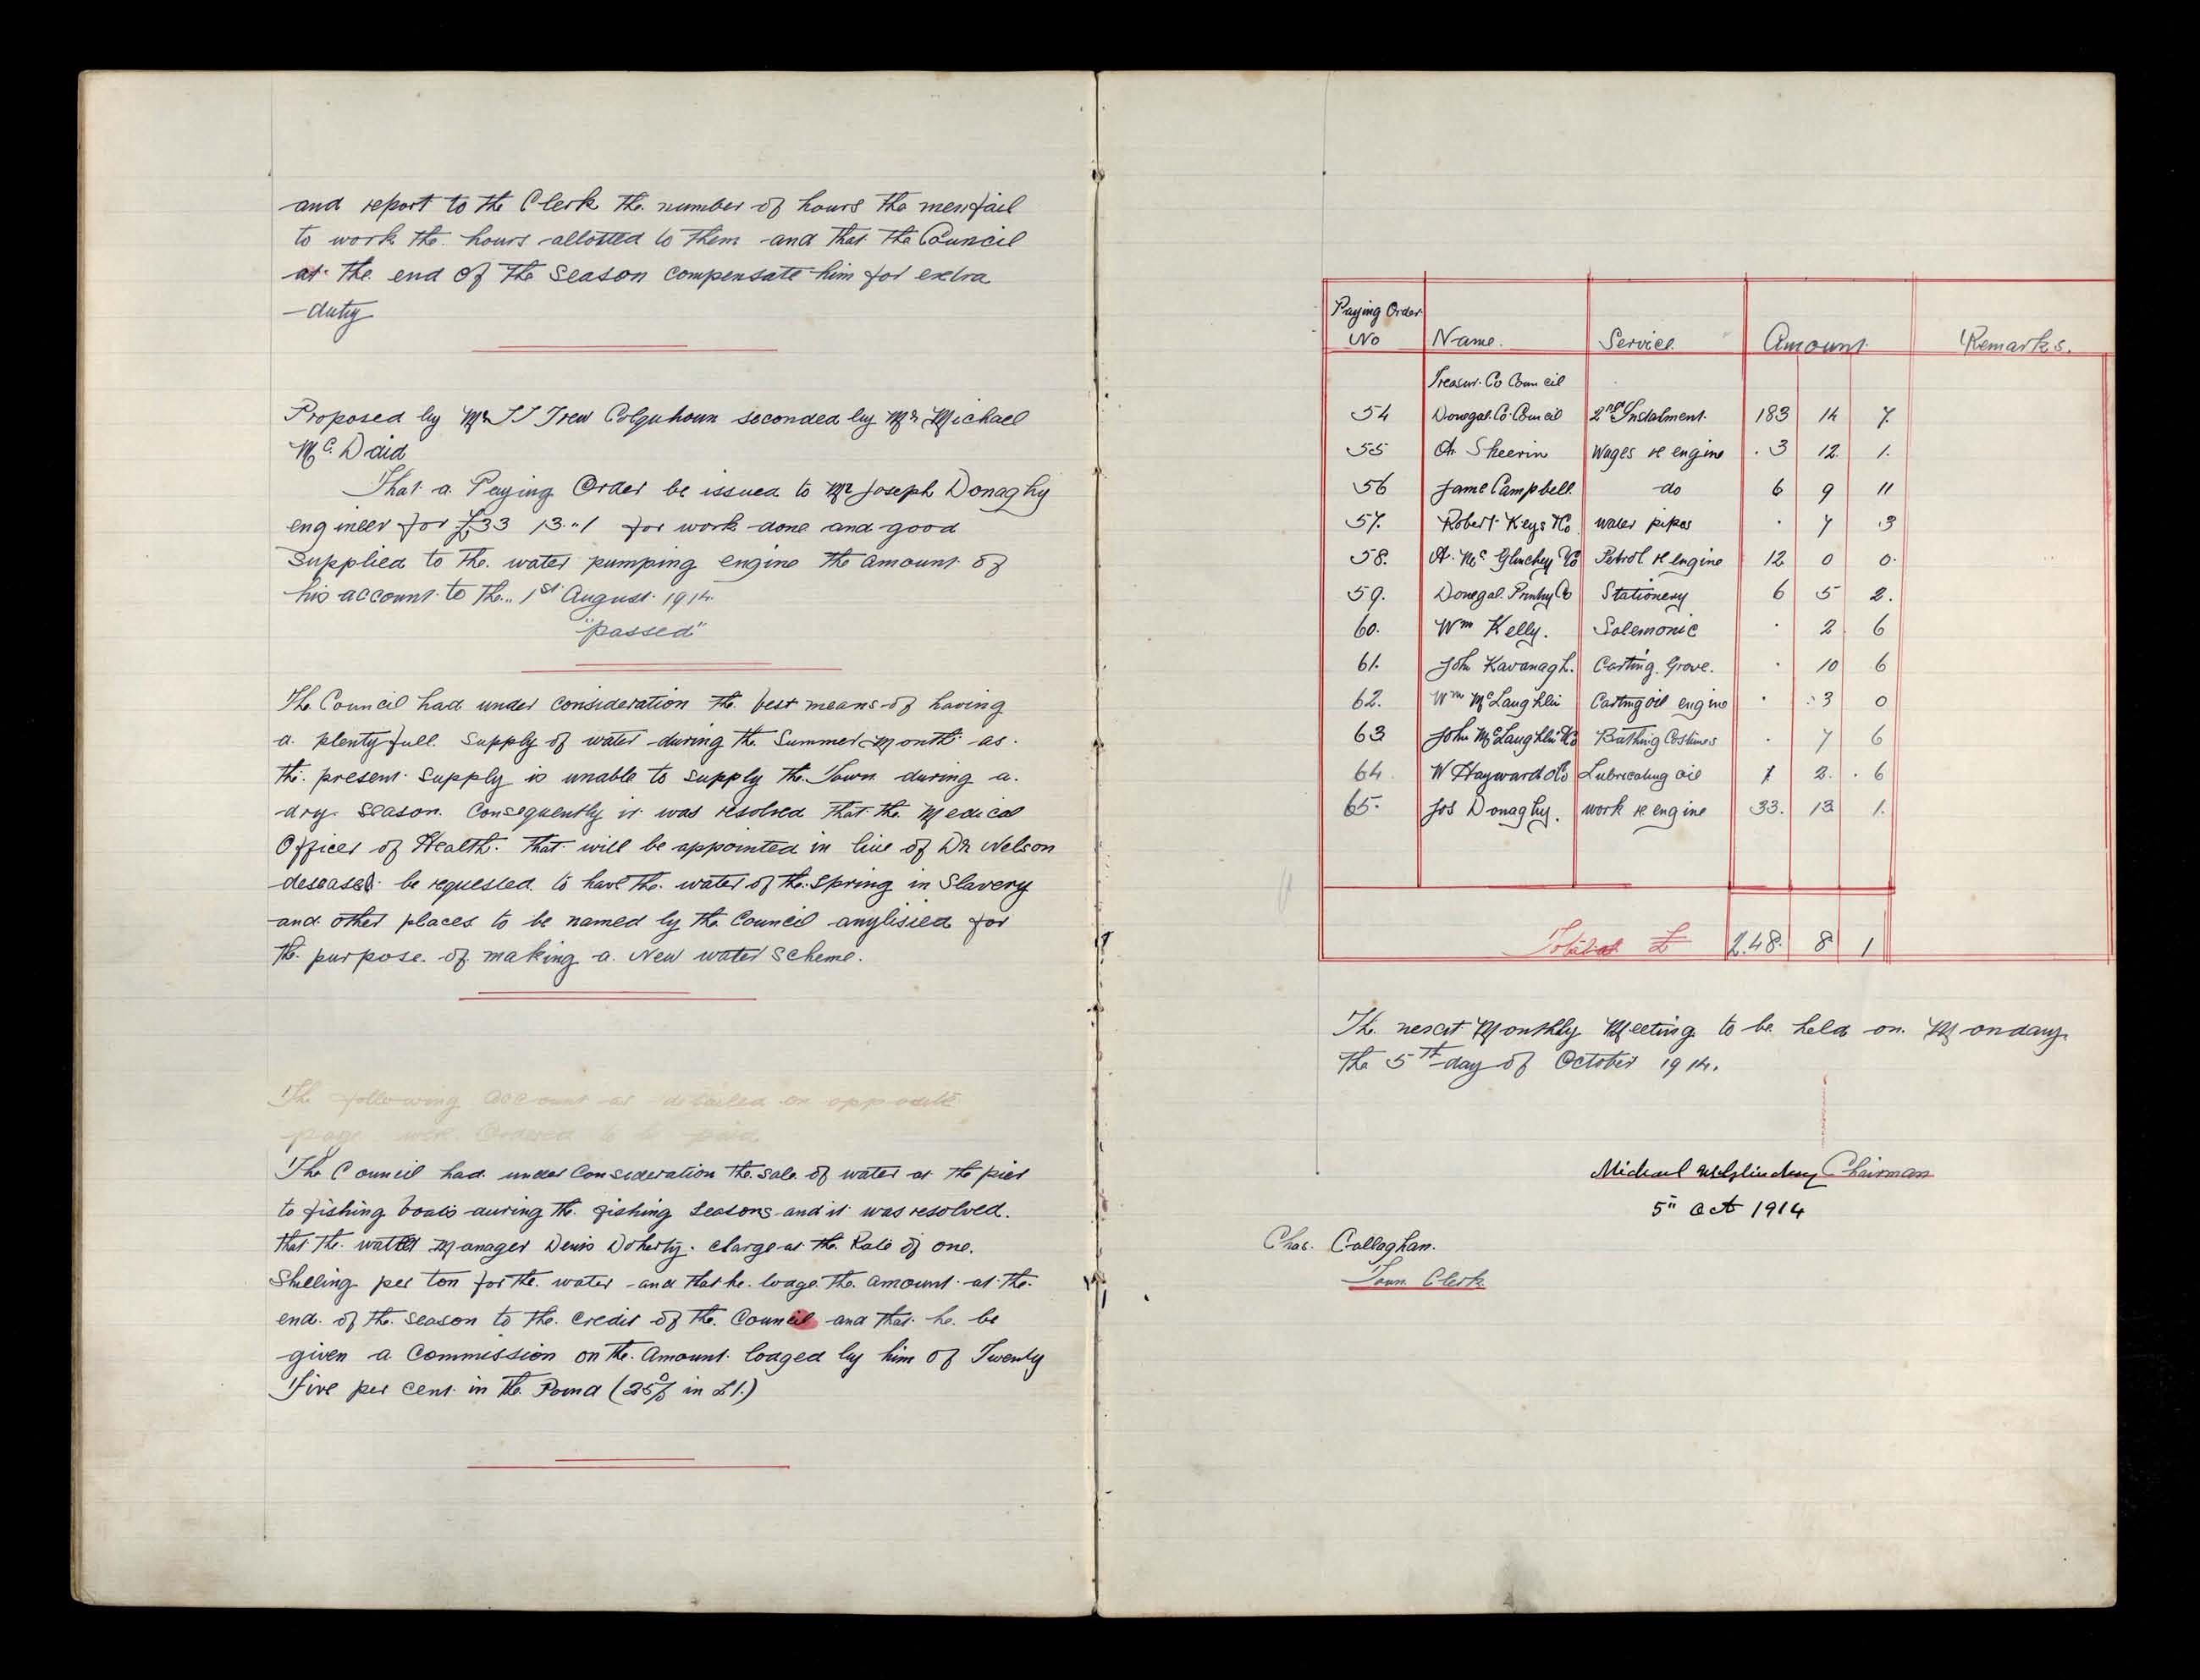 and report to the Clerk the number of hours the men fail
to work the hours allotted to them and that the Council
at the end of the season compensate him for extra
duty
Proposed by Mr Trew Colquhoun seconded by Mr Michael
Mc Daid
That a Paying Order be issued to Mr Joseph Donaghy
engineer for £33 13"1 for work done and good
supplied to the water pumping engine the amount of
his account to the 1st August 1914
"passed"
The Council had under consideration the best means of having
a plentyfull supply of water during the Summer Month as
the present supply is unable to supply the Town during a
dry season. Consequently it was resolved that the Medical
Officer of Health that will be appointed in lieu of Dr Nelson
deseased be requested to have the water of the spring in Slavery
and other places to be named by the Council anylisied for
the purpose of making a New water scheme.
The following account as detailed on opposite
page were Ordered to be paid
The Council had under Consideration the sale of water at the pier
to fishing boats during the fishing seasons and it was resolved.
that the water Manager Denis Doherty charge at the Rate of one
Shilling per ton for the water and that he lodge the amount at the
end of the season to the credit of the Council and that he be
given a Commission on the Amount lodged by him of Twenty
Five per cent in the Pound (25% in £1.)
Paying Order No Name. Service Amount Remarks.
Treasur. Co Council
54 Donegal Co Council 2nd Instalment 183 14 7
55 Sheerin Wages re engine 3 12 1
56 Jame Campbell do 6 9 11
57 Robert Keys & Co water pipes 7 3
58 A. Mc Glinchey & Co Petrol re engine 12 0 0
59 Donegal Printg Co Stationery 6 5 2
60 Wm Kelly. Salemonic 2 6
61 John Kavanagh. Carting Grove. 10 6
62 Wm McLaughlin Carting oil engine 3 0
63 John McLaughlin & Co Bathing Costumes 7 6
64 W Hayward & Co Lubricating oil 1 2 6
65 Jos Donaghy. work re engine 33 13 1
Total £ 248 8 1
The next Monthly Meeting to be held on Monday
the 5th day of October 1914.
Michael McGlinchey Chairman
5" Oct 1914
Chas. Callaghan.
Town Clerk